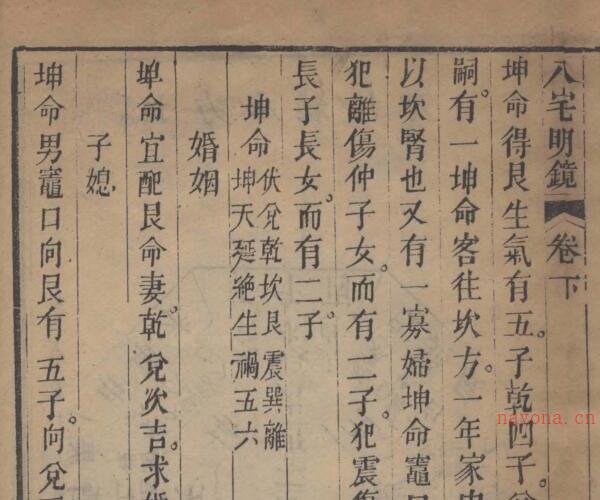 八宅明鏡 卷下
坤命得艮生氣有五。子乾四子。
嗣。有一坤命客往坎方。一年家
以坎腎也又有一寡婦坤命竈
犯離傷仲子女。而有二子。犯震傷
長子長女。而有二子。
坤命 伏兌乾坎艮震巽離
坤天延絶生禍五六
婚姻
坤命宜配艮命妻。乾兌次吉。求
子媳
坤命男竈口向艮有五子向兌
nayona.cn